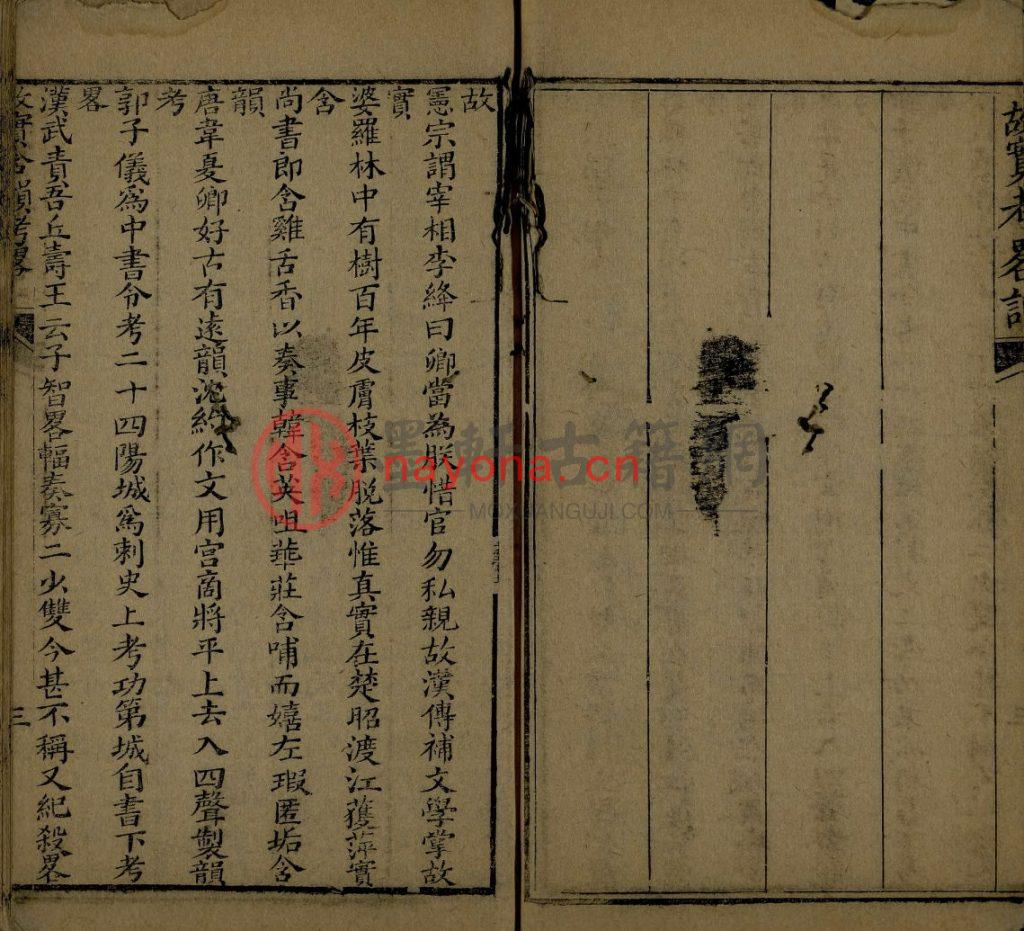 故
憲宗謂宰相李絳曰卿當為朕惜官勿私親故漢傳補文學掌故
實
婆羅林中有樹百年皮膚枝葉脫落惟真實在楚昭渡江獲萍實
含
尚書郎含雞舌香以奏事韓含英咀華莊含哺而嬉左瑕匿垢含
韻
唐韋夏卿好古有遠韻沈約作文用宮商將平上去入四聲製韻
考
郭子儀爲中書令考二十四陽城爲刺史上考功第城自書下考
畧
漢武責吾丘壽王云子智畧輻奏寡二少雙今甚不稱又紀殺畧
故實含韻考畧
三
墨軒古籍網
nayona.cn
MOXUANGUJI.COM